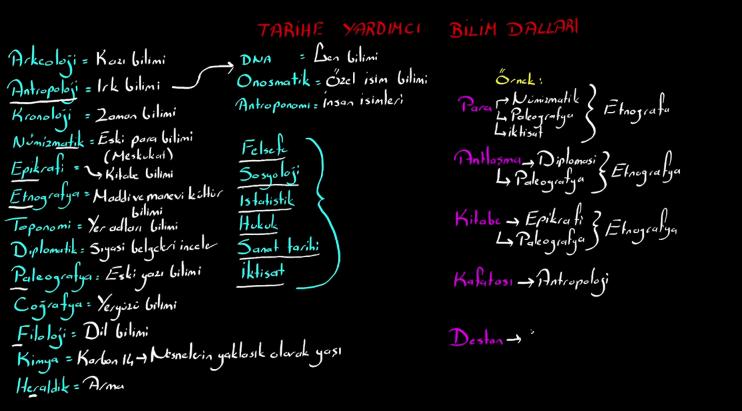 TARİHE YARDIMCI BİLİM DALLARI
Arkeoloji = Kazı bilimi
Antropoloji = Irk bilimi →
Kronoloji = Zaman bilimi
Nümizmatik = Eski para bilimi
(Meskukat)
Epikrafi = Kitabe bilimi
Etnografya = Maddi ve manevi kültür
bilimi
Toponomi = Yer adları bilimi
Diplomatik = Siyasi belgeleri inceler
Paleografya = Eski yazı bilimi
Coğrafya = Yeryüzü bilimi
Filoloji = Dil bilimi
Kimya = Karbon 14 → Nesnelerin yaklaşık olarak yaşı
Heraldik = Arma
DNA = Gen bilimi
Onosmatik = Özel isim bilimi
Antroponomi = insan isimleri
Felsefe
Sosyoloji
İstatistik
Hukuk
Sanat tarihi
İktisat
Örnek :
Para → Nümizmatik
→ Paleografya
→ iktisat
} Etnografa
Antlaşma → Diplomasi
→ Paleografya
} Etnografya
Kitabe → Epikrafi
→ Paleografya
} Etnografya
Kafatası → Antropoloji
Destan →